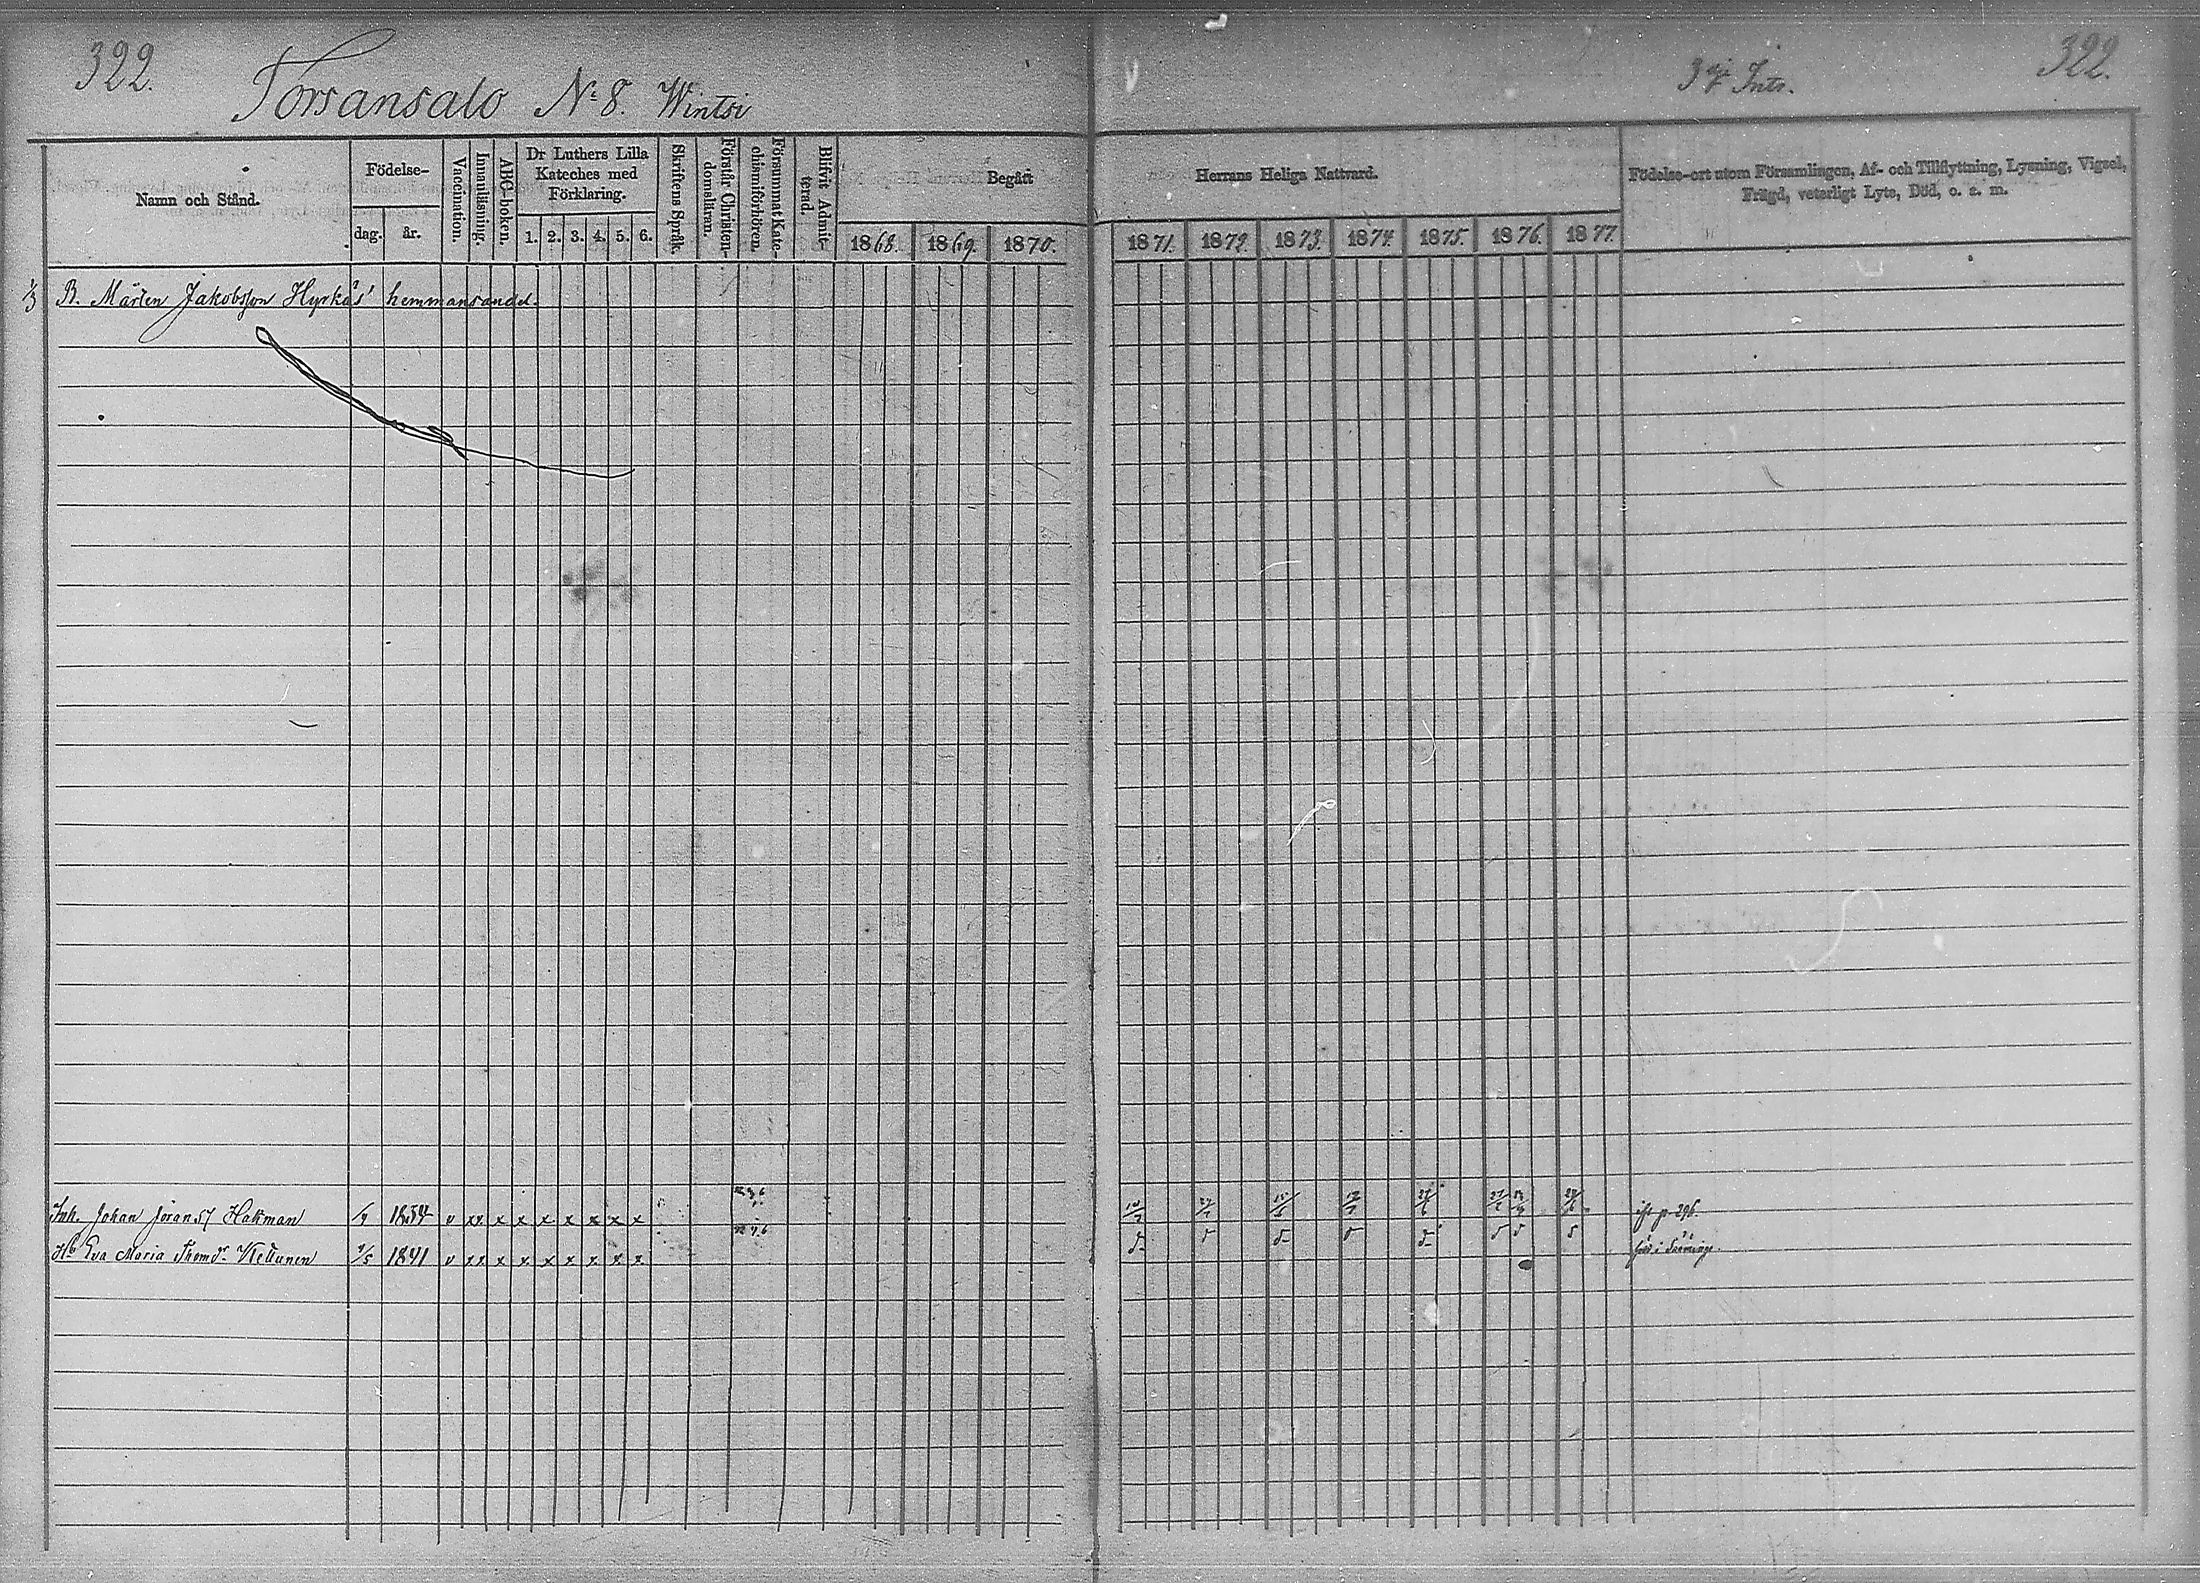 322.
Torsansalo № 8. Wintsi
322.
Namn och Stånd.
Födelse-
dag.
år.
Vaccination.
Innanläsning.
ABC-boken.
Dr Luthers Lilla
Kateches med
Förklaring.
1. 2. 3. 4. 5. 6.
Skriftens Språk.
Förstår Christen-
domsläran.
Försummat Kate-
chismiförhören.
Blifvit Admit-
terad.
Begått
1868. 1869. 1870.
Herrans Heliga Nattvard.
1871. 1872. 1873. 1874. 1875. 1876. 1877.
Födelse-ort utom Församlingen, Af- och Tillflyttning, Lysning, Vigsel,
Frägd, veterligt Lyte, Död, o. s. m.
1/3 B. Mårten Jakobsson Hyrkäs' hemmansandel.
Inh. Johan Hakman 1834 v xx x x x x x x x p. 296.
Hu Eva Maria Thomdr 9/5 1841 v xx x x x x x x x